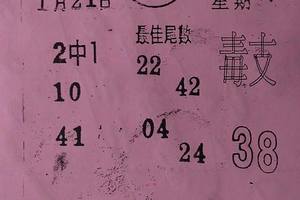 1月21日 星期
2中1 最佳尾数
22
10 42
41 04
24 38